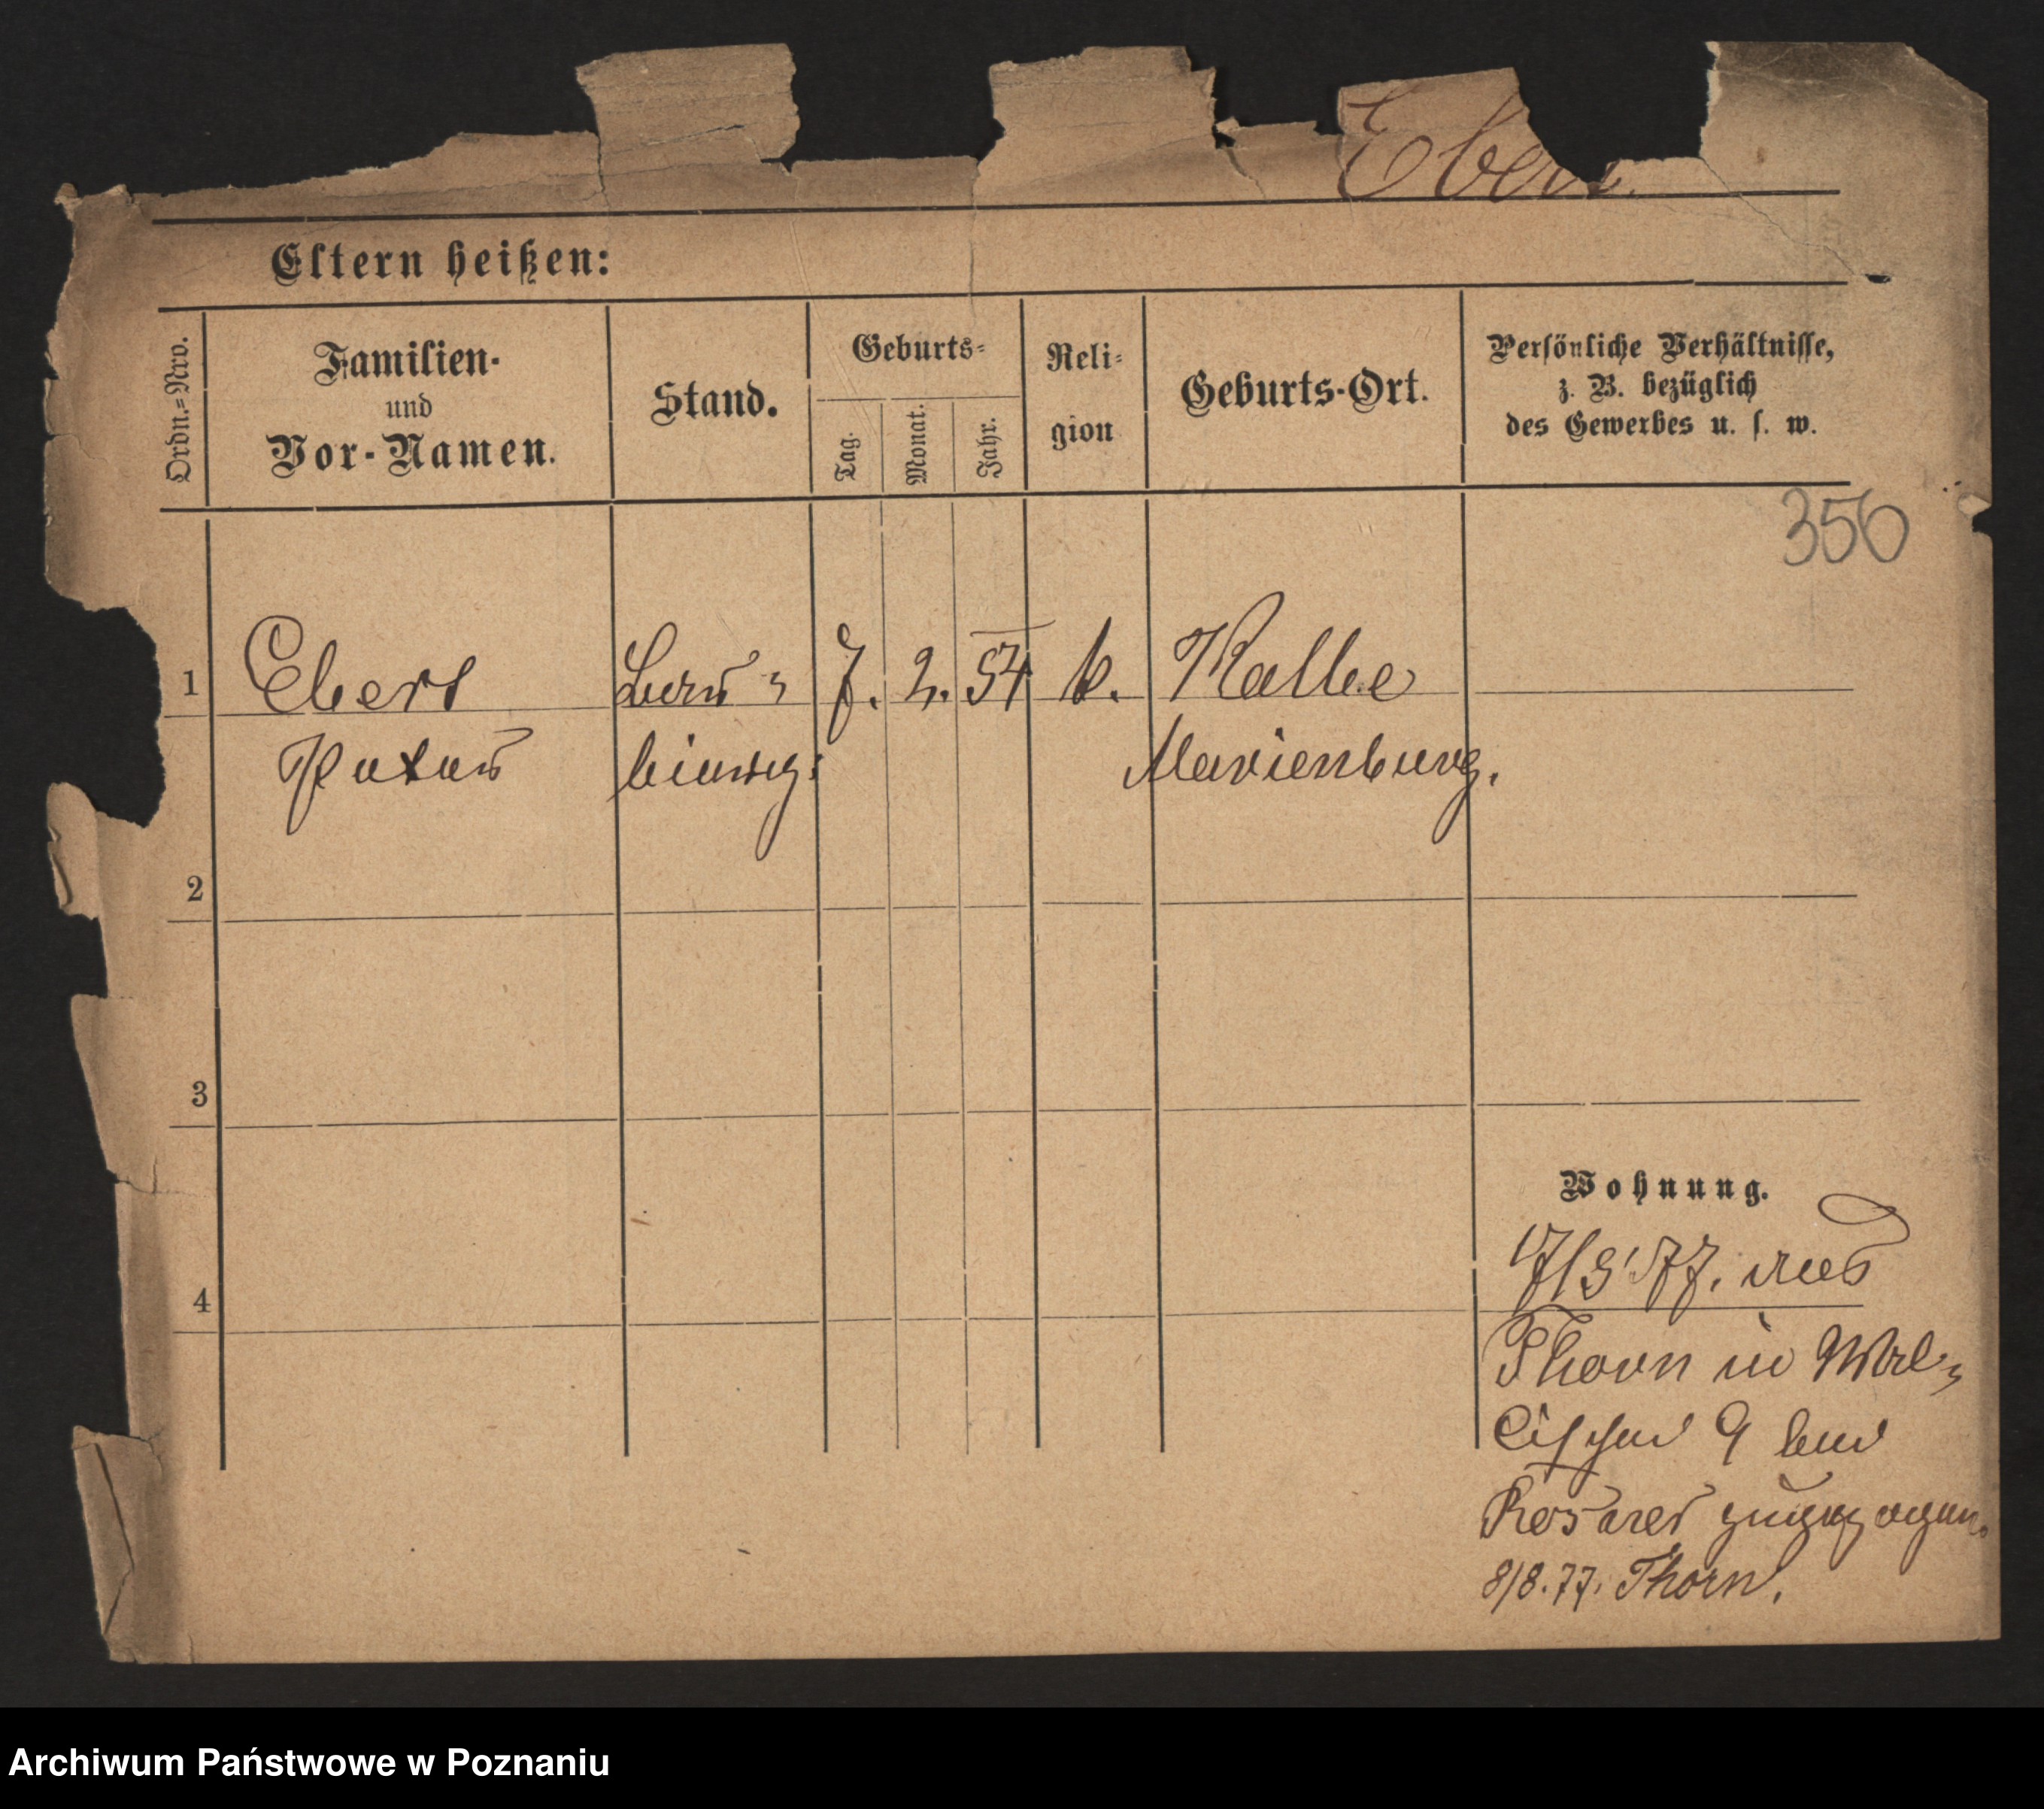 Ebert.
Eltern heißen:
Ordn.-Nro.
Familien-
und
Vor-Namen.
Stand.
Geburts-
Tag.
Monat.
Jahr.
Reli-
gion
Geburts-Ort.
Persönliche Verhältnisse,
z. B. bezüglich
des Gewerbes u. s. w.
356
1 Ebert 7. 2. 54 k. Kalbe
Peter Marienburg.
2
3
4
Wohnung.
77. aus
Thorn in Wal-
lischei 9 bei
zugezogen.
8/8.77. Thorn.
Archiwum Państwowe w Poznaniu